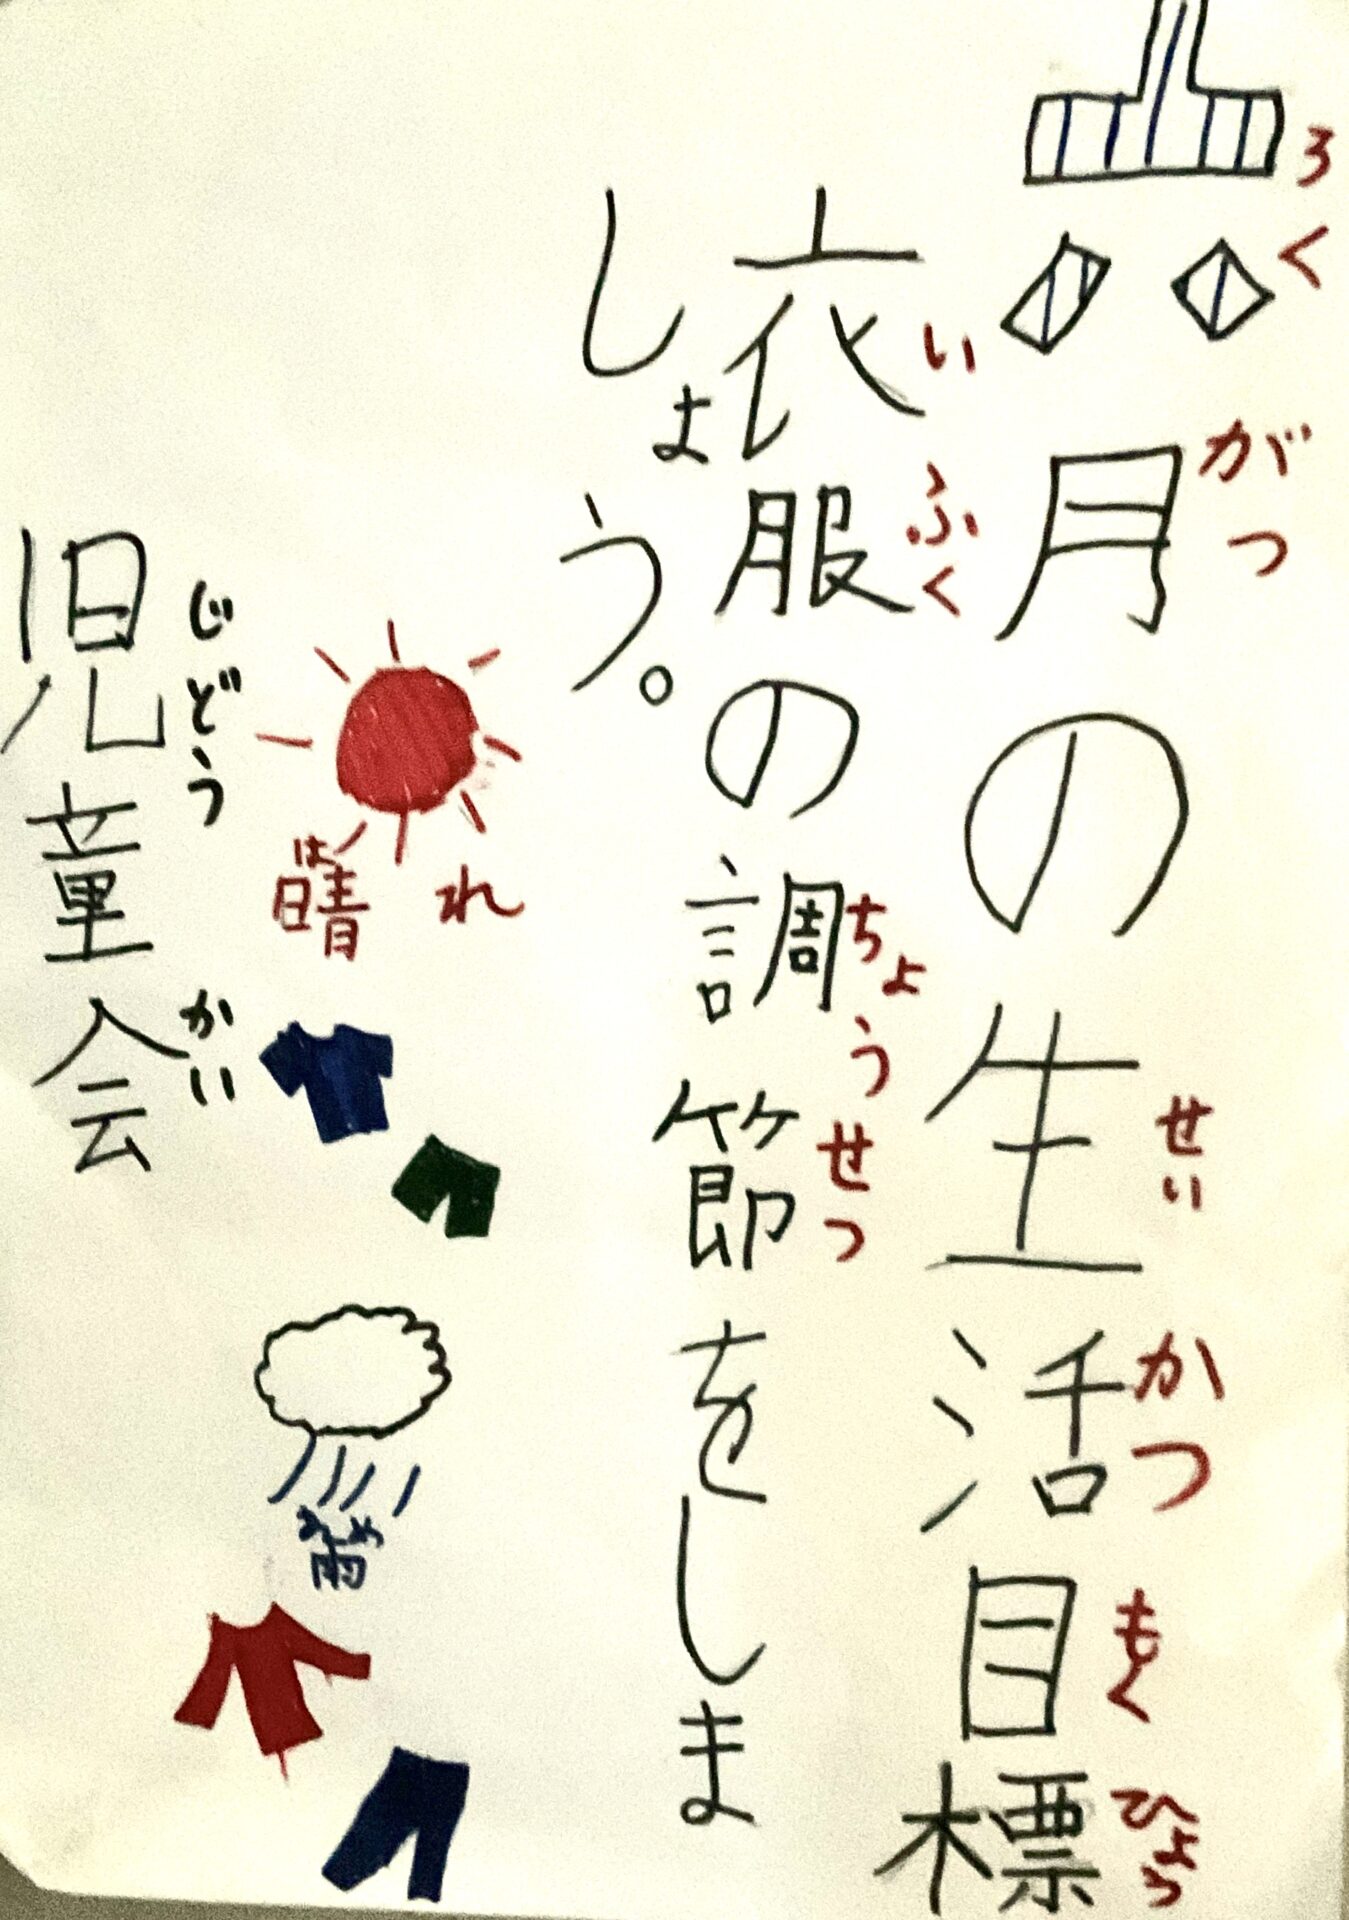 六月の生活目標
ろくがつ せいかつもくひょう
衣服の調節をしま
いふく ちょうせつ
しょう。
晴れ
は
雨
あめ
児童会
じどう かい